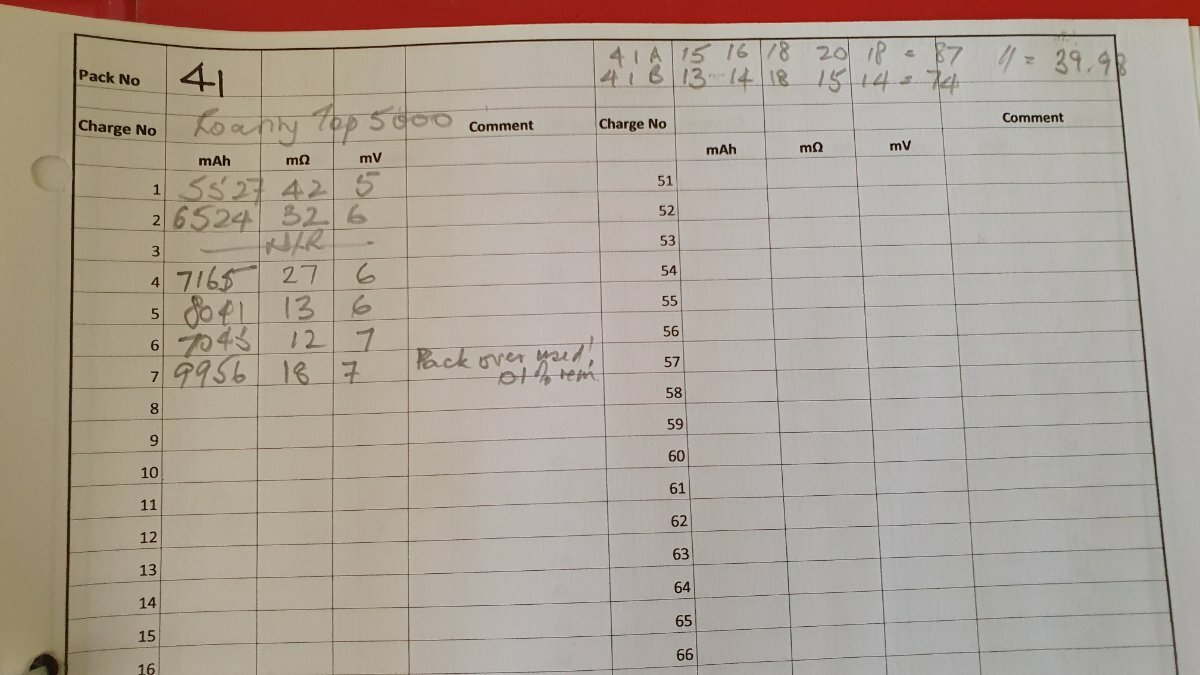 Pack No 41 41A 15 16 18 20 18 = 87 = 39.98
41B 13 14 18 15 14 = 74
Charge No Top 5000 Comment Charge No Comment
mAh mΩ mV mAh mΩ mV
1 5527 42 5 51
2 6524 32 6 52
3 N/R 53
4 7165 27 6 54
5 8041 13 6 55
6 7045 12 7 56
7 9956 18 7 Pack over used! 57
01% rem
8 58
9 59
10 60
11 61
12 62
13 63
14 64
15 65
16 66